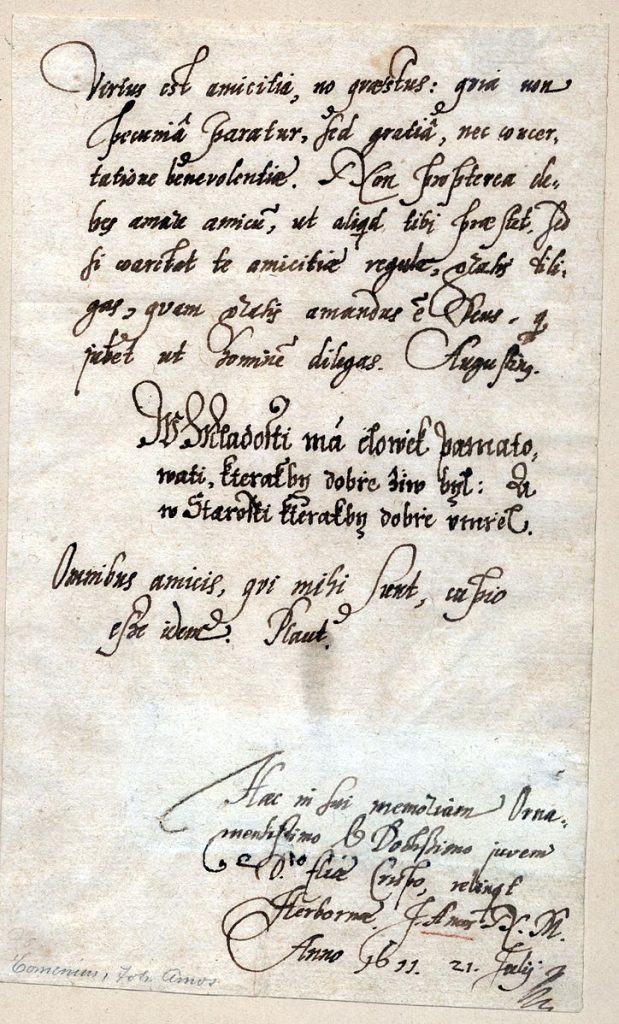 Virtus est amicitia, no quæstus: quia non
pecuniâ paratur, sed gratiâ, nec concer-
tatione benevolentiæ. Non propterea de-
bes amare amicũ, ut aliqd tibi præstet, sed
si coaritet te amicitiæ regulæ, gratis dili-
gas, quam gratis amandus ẽ Deus, q
jubet ut hominẽ diligas. Augustin9.
W Mladosti má člowek pamato,
wati, kterakby dobře žiw byl: A
w Starosti kterakby dobře vmřel.
Omnibus amicis, qui mihi sunt, cupio
esse idem. Plaut.
Hæc in sui memoriam Orna-
mentissimo & Doctissimo juveni
D. Eliæ Crispo, relinqt
Herbornæ. J. Amos N. M.
Anno 1611. 21. Julij
Comenius, Joh. Amos